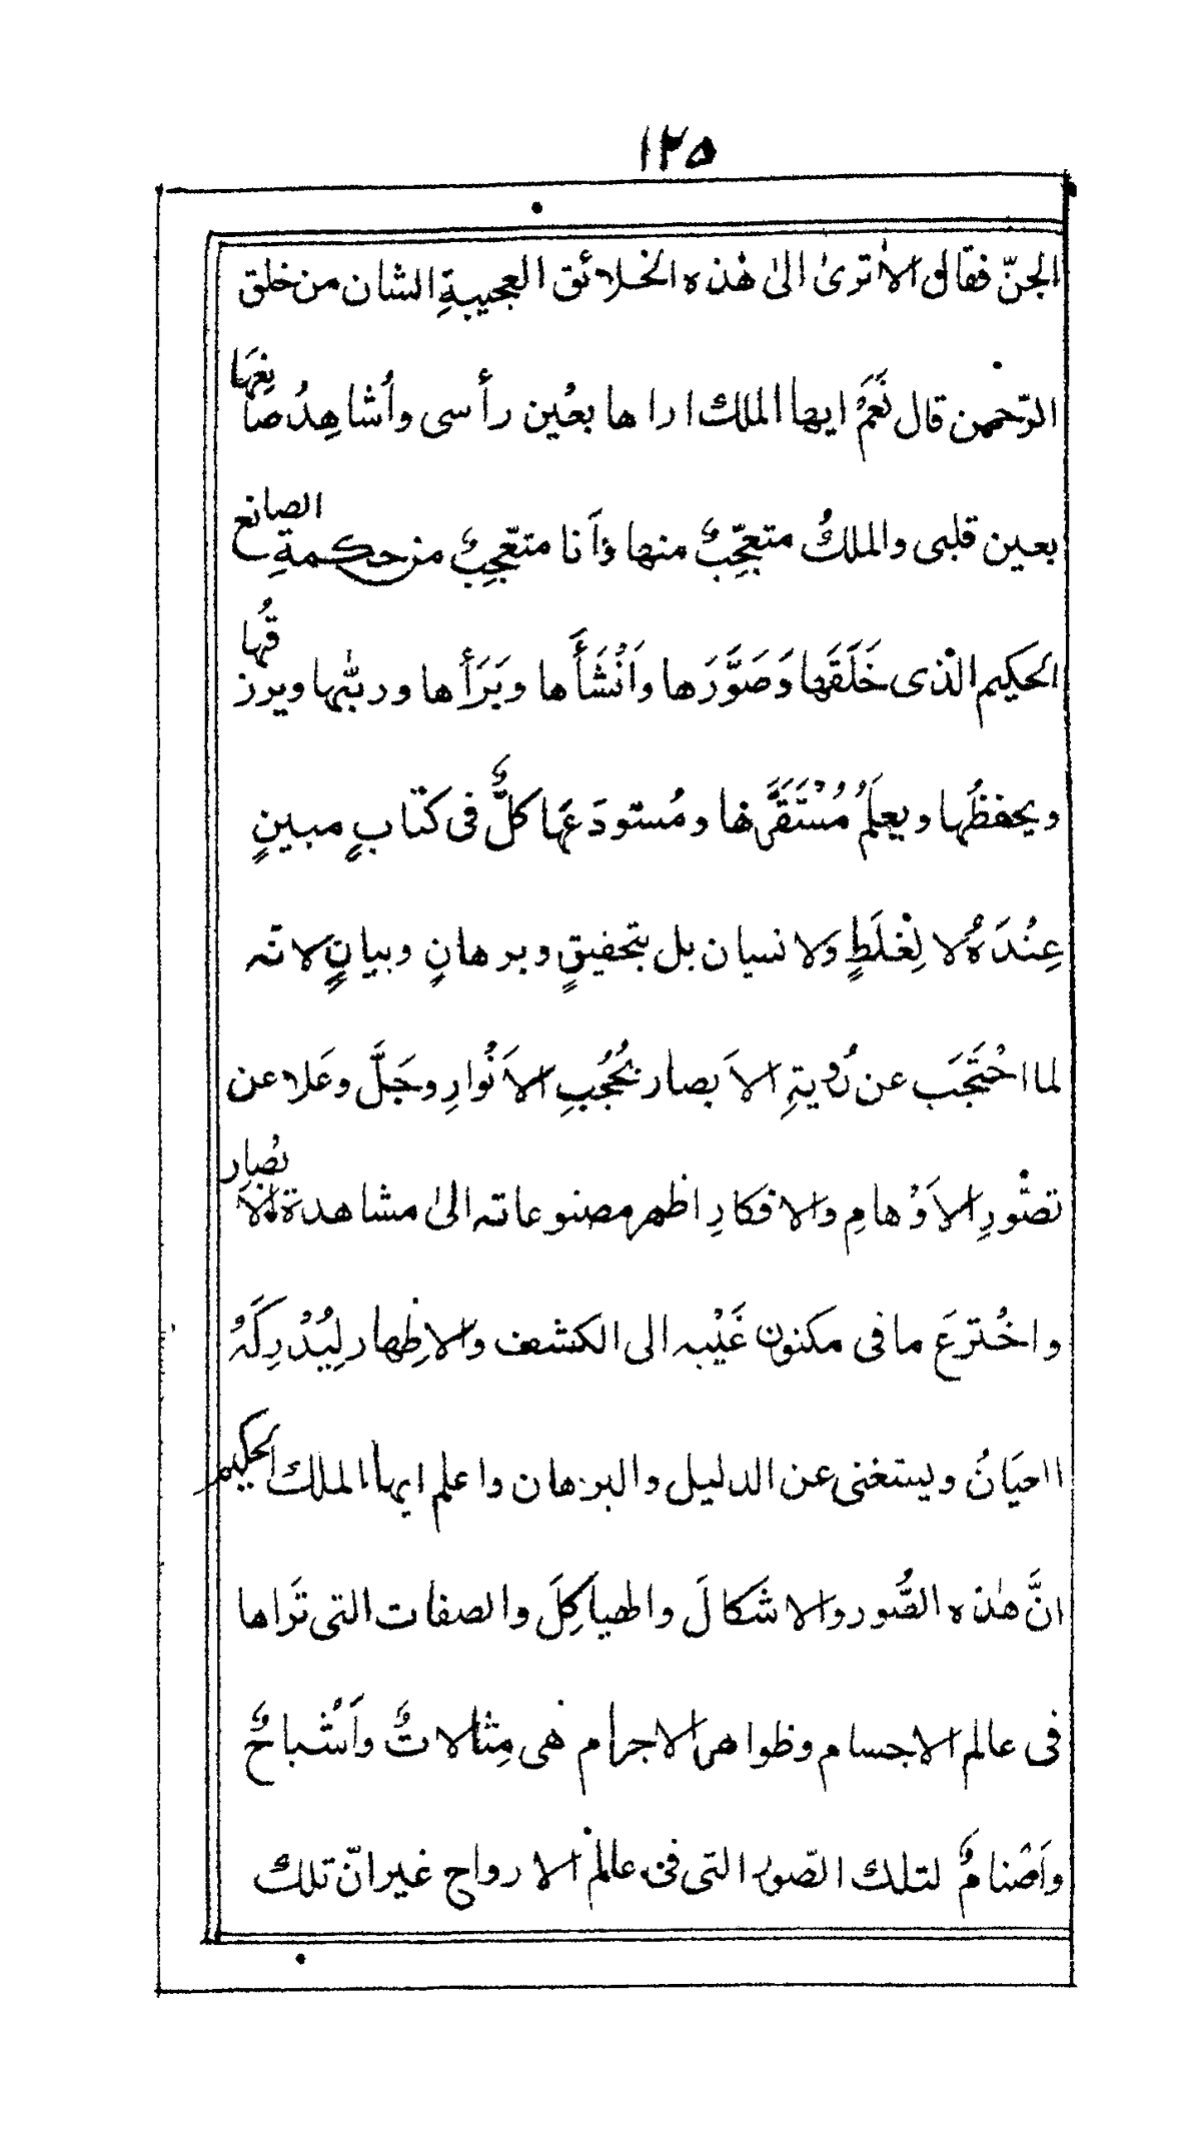 ١٢٥
الجنّ فقال الا ترىٰ الىٰ هٰذه الخلائق العجيبةِ الشان من خلق
الرّحمٰن قال نَعَمْ ايها الملك اراها بعُين رأسى واُشاهِدُ صانِعَها
بعين قلبى والملكُ متعجّبٌ منها وَاَنا متعّجبٌ من حكمةِ الصانع
الحكيم الّذى خَلَقَها وَصَوَّرَها واَنْشَأَها وبَرَأَها وربّٰها ويرزقُها
ويحفظُها ويعلَمُ مُسْتَقَرَّها ومُستودَعَها كلٌّ فى كتابٍ مبينٍ
عِنْدَهُ لا لِغْلَطٍ ولا نسيان بل بتحقيقٍ وبرهانٍ وبيانٍ لانّه
لما احْتَجَبَ عن رُويةِ الاَبصار بحُجُبِ الاَنْوارِ وجَلَّ وعَلا عن
تصّورِ الاَوْهامِ والافكارِ اظهر مصنوعاته الىٰ مشاهدة الاَبْصار
واخْترعَ ما فى مكنون غَيْبه الى الكشف والاظِهار لِيُدْرِكَهُ
ااحيَانُ ويستغنى عن الدليل والبرهان واعلم ايها الملك الحكيم
انَّ هٰذه الصُّور والاشكالَ والهياَكِلَ والصفات التى تَراها
فى عالم الاجسام وظواهر الاجرام هى مِثالاتٌ واَشْباحٌ
واَصْنامٌ لتلك الصّور التى فى عالم الارواح غير انّ تلك